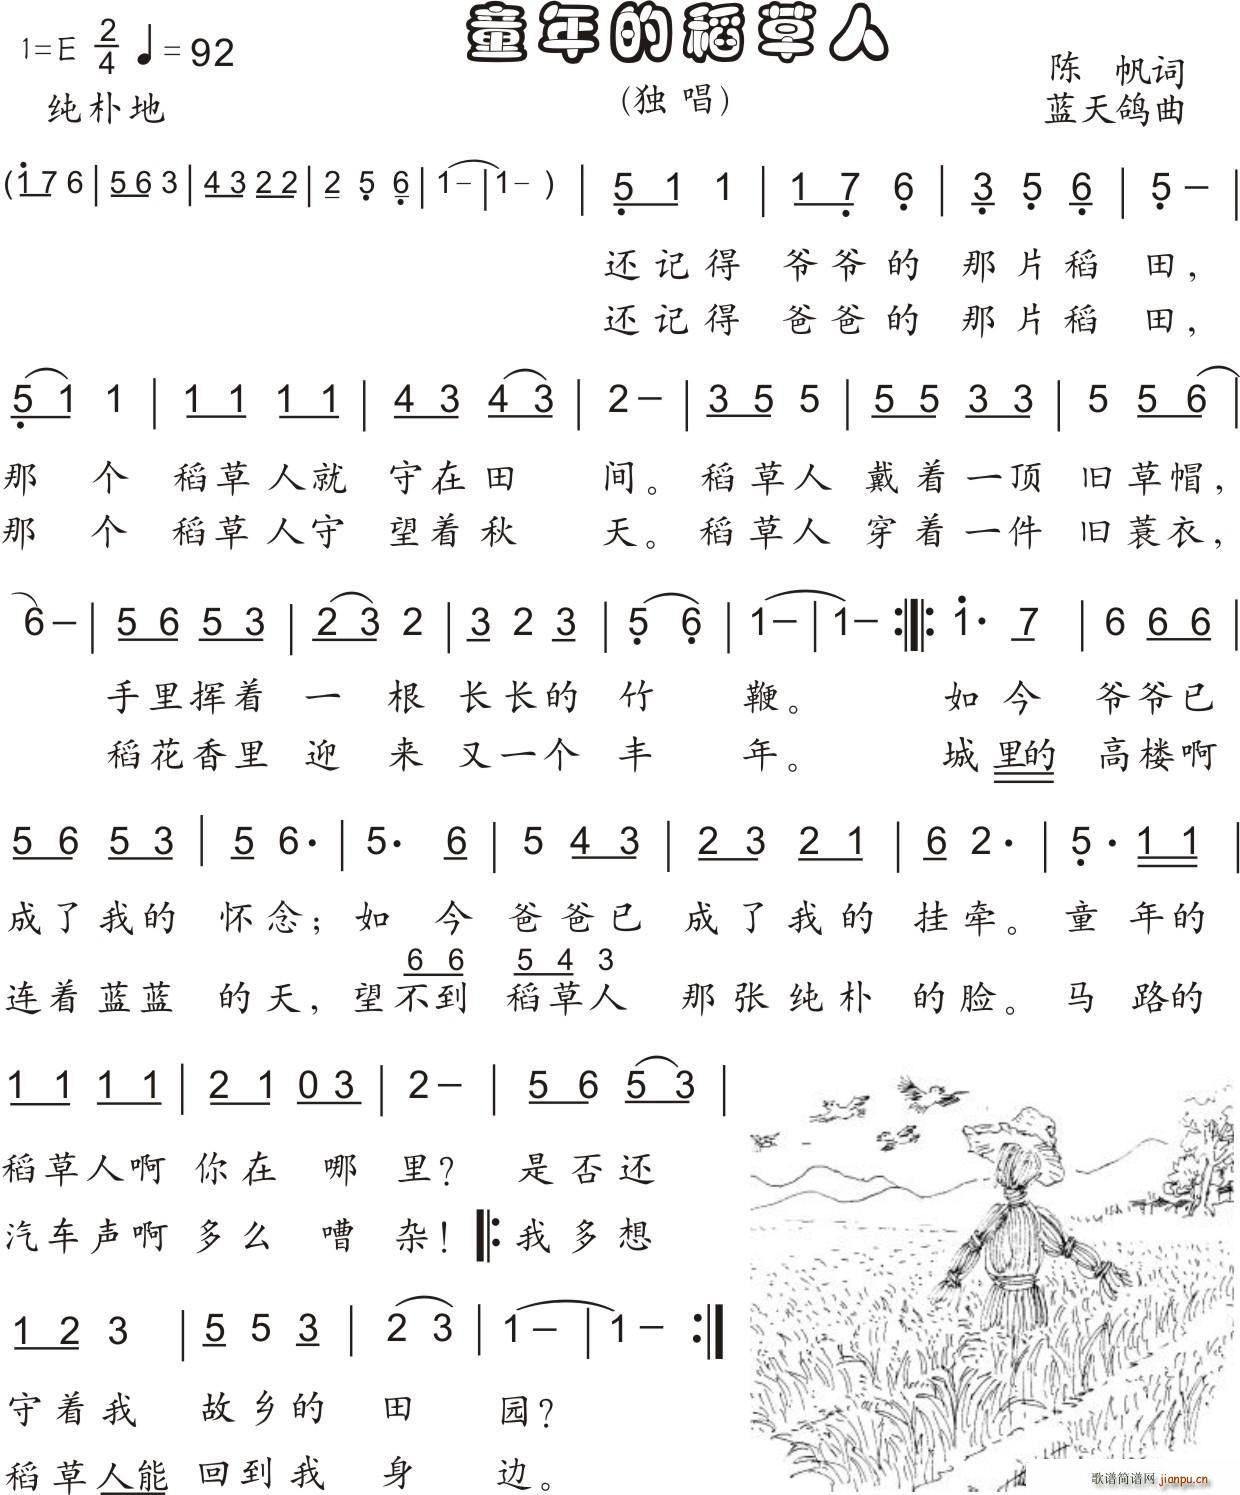 童年的稻草人
1=E 2/4 ♩=92
纯朴地
(独唱)
陈 帆词
蓝天鸽曲
(1 7 6 | 5 6 3 | 4 3 2 2 | 2 5 6 | 1 – | 1 – ) | 5 1 1 | 1 7 6 | 3 5 6 | 5 – |
还记得 爷爷的 那片稻 田，
还记得 爸爸的 那片稻 田，
5 1 1 | 1 1 1 1 | 4 3 4 3 | 2 – | 3 5 5 | 5 5 3 3 | 5 5 6 |
那 个 稻草人就 守在田 间。 稻草人 戴着一顶 旧草帽，
那 个 稻草人守 望着秋 天。 稻草人 穿着一件 旧蓑衣，
6 – | 5 6 5 3 | 2 3 2 | 3 2 3 | 5 6 | 1 – | 1 – :||: 1· 7 | 6 6 6 |
手里挥着 一 根 长长的 竹 鞭。 如今 爷爷已
稻花香里 迎 来 又一个 丰 年。 城里的 高楼啊
5 6 5 3 | 5 6· | 5· 6 | 5 4 3 | 2 3 2 1 | 6 2· | 5· 1 1 |
成了我的 怀念； 如 今 爸爸已 成了我的 挂牵。 童 年的
6 6 5 4 3
连着蓝蓝 的天， 望不到 稻草人 那张纯朴 的脸。 马 路的
1 1 1 1 | 2 1 0 3 | 2 – | 5 6 5 3 |
稻草人啊 你在 哪 里？ 是否还
汽车声啊 多么 嘈 杂！ ||: 我多想
1 2 3 | 5 5 3 | 2 3 | 1 – | 1 – :||
守着我 故乡的 田 园？
稻草人能 回到我 身 边。
歌谱简谱网 jianpu.cn